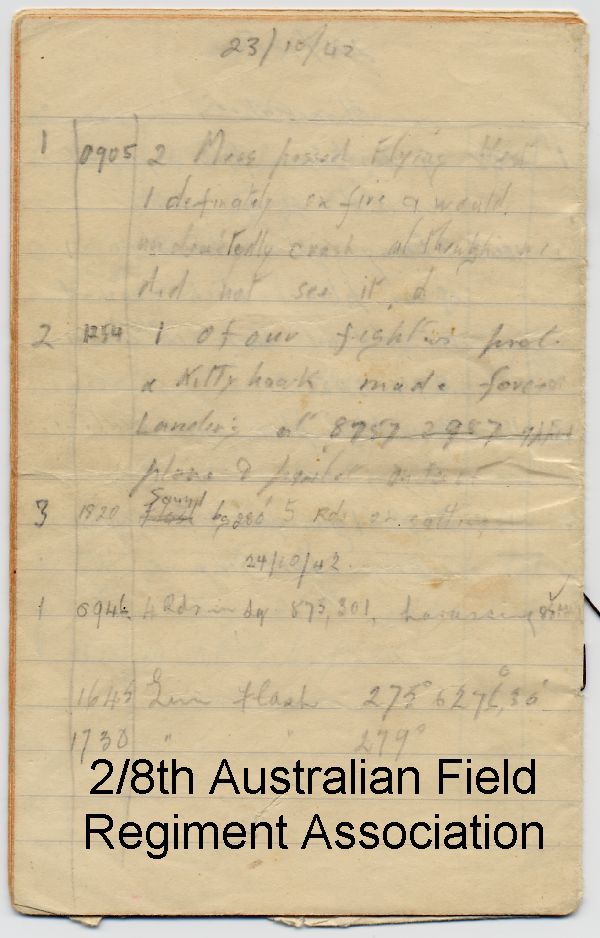 23/10/42
1 0905 2 Mess passed Flying West
1 definately on fire & would
undoubtedly crash although we
did not see it
2 1254 1 of our fighters prob.
a Kitty hawk made forced
Landing at 8757 2987
plane & pilot
3 1820 Sound bg 280° 5 Rds on
24/10/42.
1 0946 4 Rds in sq 875, 301, harassing
1645 Gun flash 275°
1730 " " 279°
2/8th Australian Field
Regiment Association